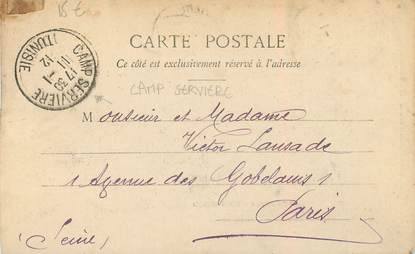 18 €
CARTE POSTALE
Ce côté est exclusivement réservé à l'adresse
CAMP SERVIERE
TUNISIE
CAMP SERVIERE
Monsieur et Madame
Victor Lansade
1 Avenue des Gobelins 1
Paris
(Seine)